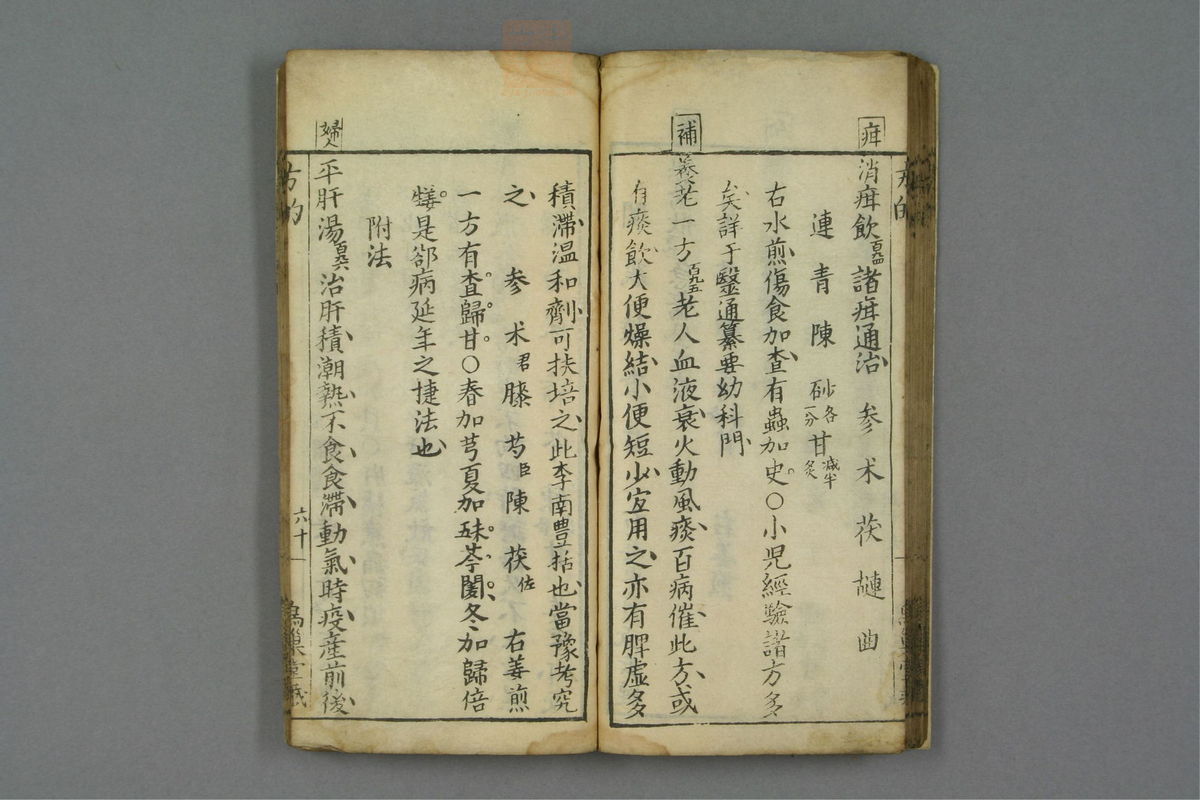 疳
消疳飲百九四諸疳通治 参 朮 茯 槤 曲
連 青 陳 砂各一分 甘減半炙
右水煎傷食加査有蟲加史。〇小児經驗諸方多
矣詳于醫通纂要幼科門
補
養老一方百九五老人血液衰火動風痰百病催此方或
有痰飲大便燥結小便短少宜用之亦有脾虚多
積滯温和劑可扶培之此李南豊括也當豫考究
之 参 朮君 膝 芍臣 陳 茯佐 右姜煎
一方有査。歸。甘。〇春加芎夏加五味。芩。冬加歸倍
是郤病延年之捷法也
附法
婦人
平肝湯百九六治肝積潮熱不食食滯動氣時疫産前後
方的
六十
爲巢堂藏